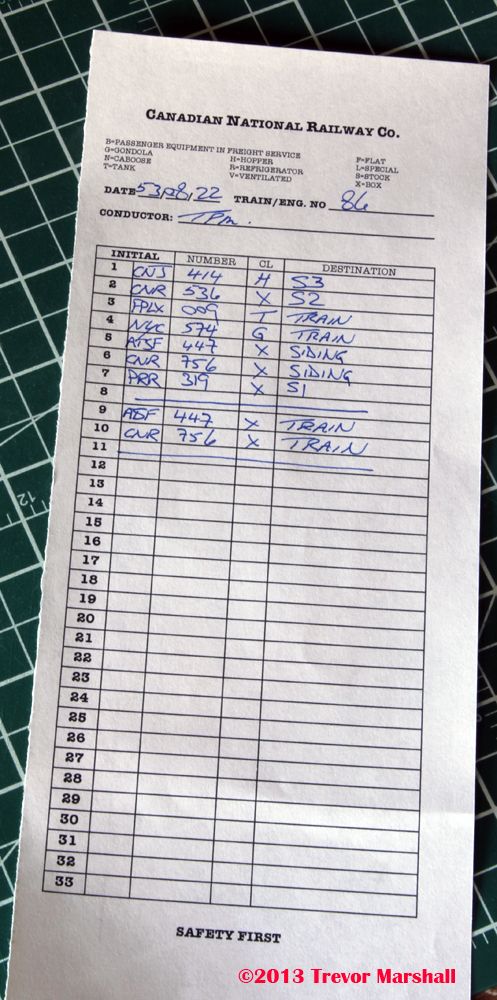 CANADIAN NATIONAL RAILWAY CO.
B=PASSENGER EQUIPMENT IN FREIGHT SERVICE
G=GONDOLA H=HOPPER F=FLAT
N=CABOOSE R=REFRIGERATOR L=SPECIAL
T=TANK V=VENTILATED S=STOCK
X=BOX
DATE 53/8/22 TRAIN/ENG. NO 86
CONDUCTOR: TPM.
INITIAL NUMBER CL DESTINATION
1 CNJ 414 H S3
2 CNR 536 X S2
3 PPLX 009 T TRAIN
4 NYC 574 G TRAIN
5 ATSF 447 X SIDING
6 CNR 756 X SIDING
7 PRR 319 X S1
8
9 ATSF 447 X TRAIN
10 CNR 756 X TRAIN
11
12
13
14
15
16
17
18
19
20
21
22
23
24
25
26
27
28
29
30
31
32
33
SAFETY FIRST
©2013 Trevor Marshall